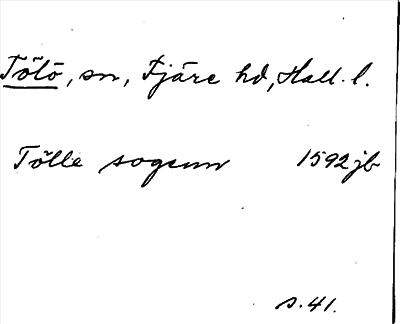 Tölö, sn, Fjäre hd, Hall. l.
Tölle sogenn 1592 jb
s. 41.